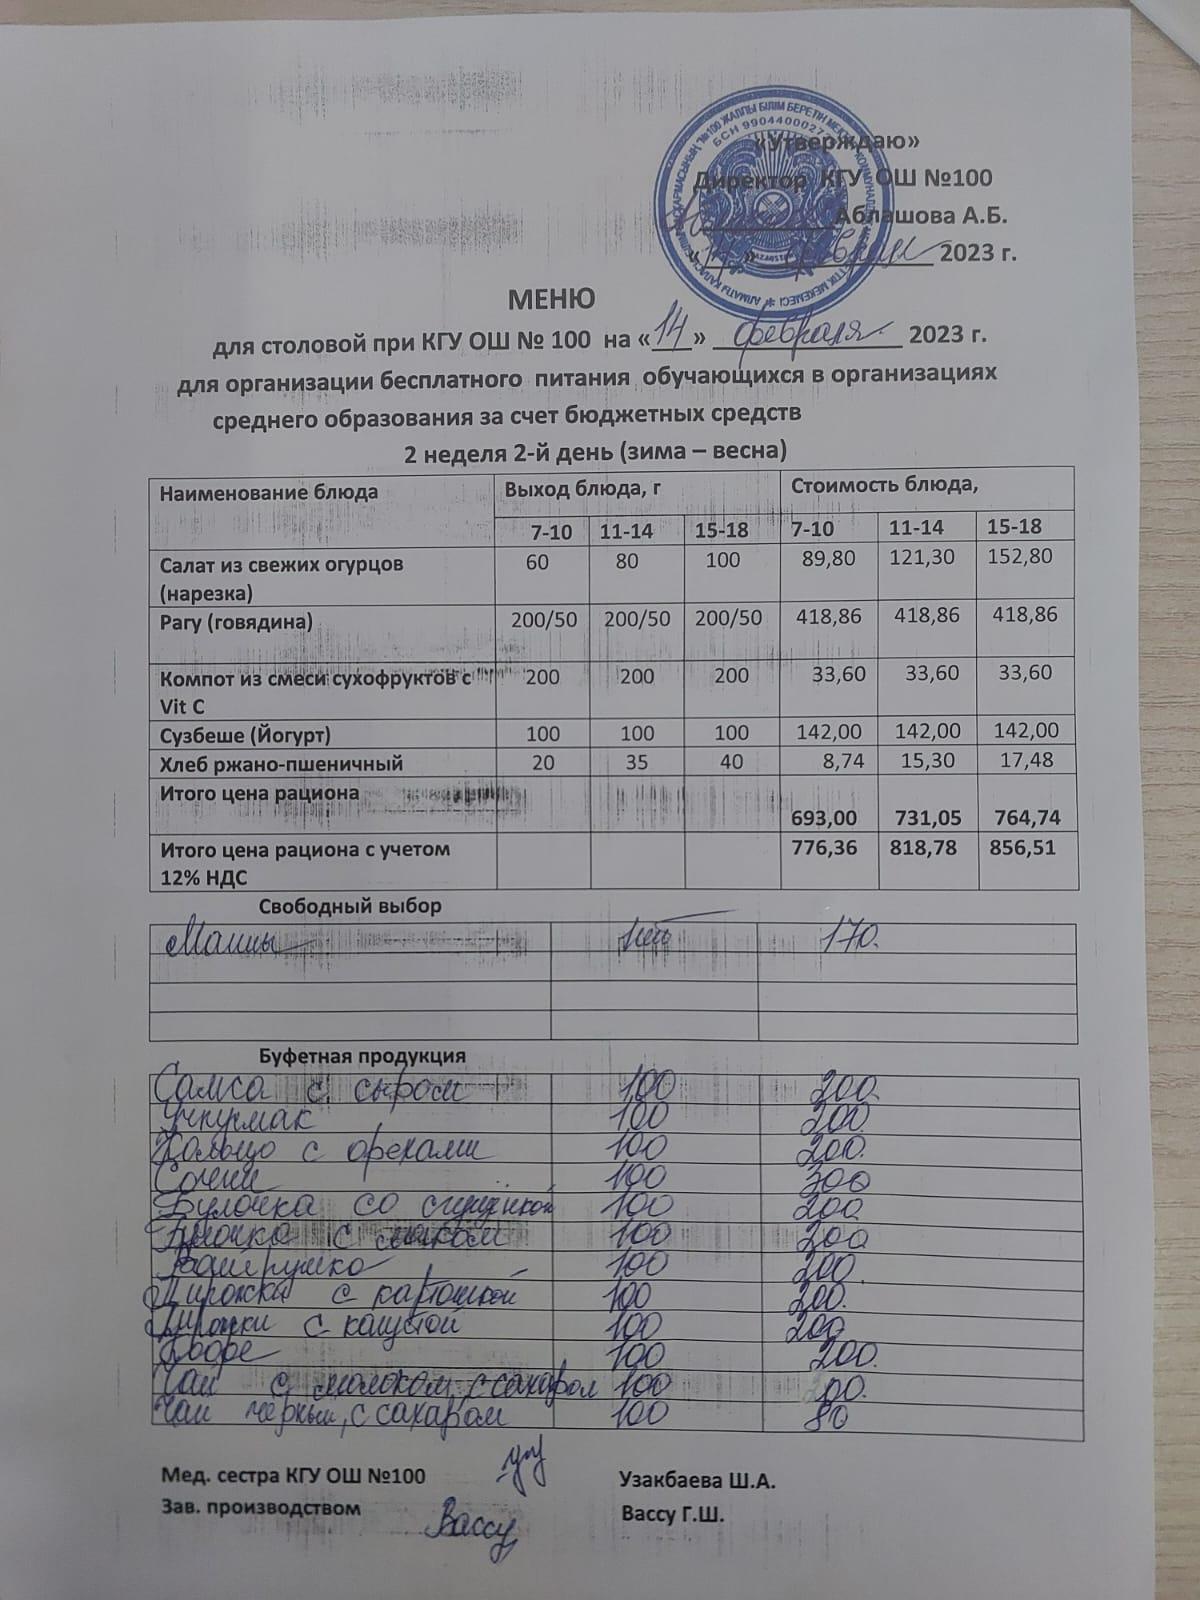 №100 ЖАЛПЫ БІЛІМ БЕРЕТІН
БСН 9904400027
«Утверждаю»
Директор КГУ ОШ №100
Аблашова А.Б.
«14» февраля 2023 г.
МЕНЮ
для столовой при КГУ ОШ № 100 на «14» февраля 2023 г.
для организации бесплатного питания обучающихся в организациях
среднего образования за счет бюджетных средств
2 неделя 2-й день (зима – весна)
Наименование блюда Выход блюда, г Стоимость блюда,
7-10 11-14 15-18 7-10 11-14 15-18
Салат из свежих огурцов 60 80 100 89,80 121,30 152,80
(нарезка)
Рагу (говядина) 200/50 200/50 200/50 418,86 418,86 418,86
Компот из смеси сухофруктов с 200 200 200 33,60 33,60 33,60
Vit C
Сузбеше (Йогурт) 100 100 100 142,00 142,00 142,00
Хлеб ржано-пшеничный 20 35 40 8,74 15,30 17,48
Итого цена рациона
693,00 731,05 764,74
Итого цена рациона с учетом 776,36 818,78 856,51
12% НДС
Свободный выбор
Манты 1шт 170.
Буфетная продукция
Самса с сыром 100 200.
Учпучмак 100 200.
Кольцо с орехами 100 200.
Сочни 100 300
Булочка со сгущенкой 100 200
Булочка с маком 100 200
Ватрушка 100 200.
Пирожки с картошкой 100 200.
Пирожки с капустой 100 200
100 200.
Чай с молоком, с сахаром 100 00.
Чай черный, с сахаром 100 80
Мед. сестра КГУ ОШ №100 Узакбаева Ш.А.
Зав. производством Вассу Вассу Г.Ш.